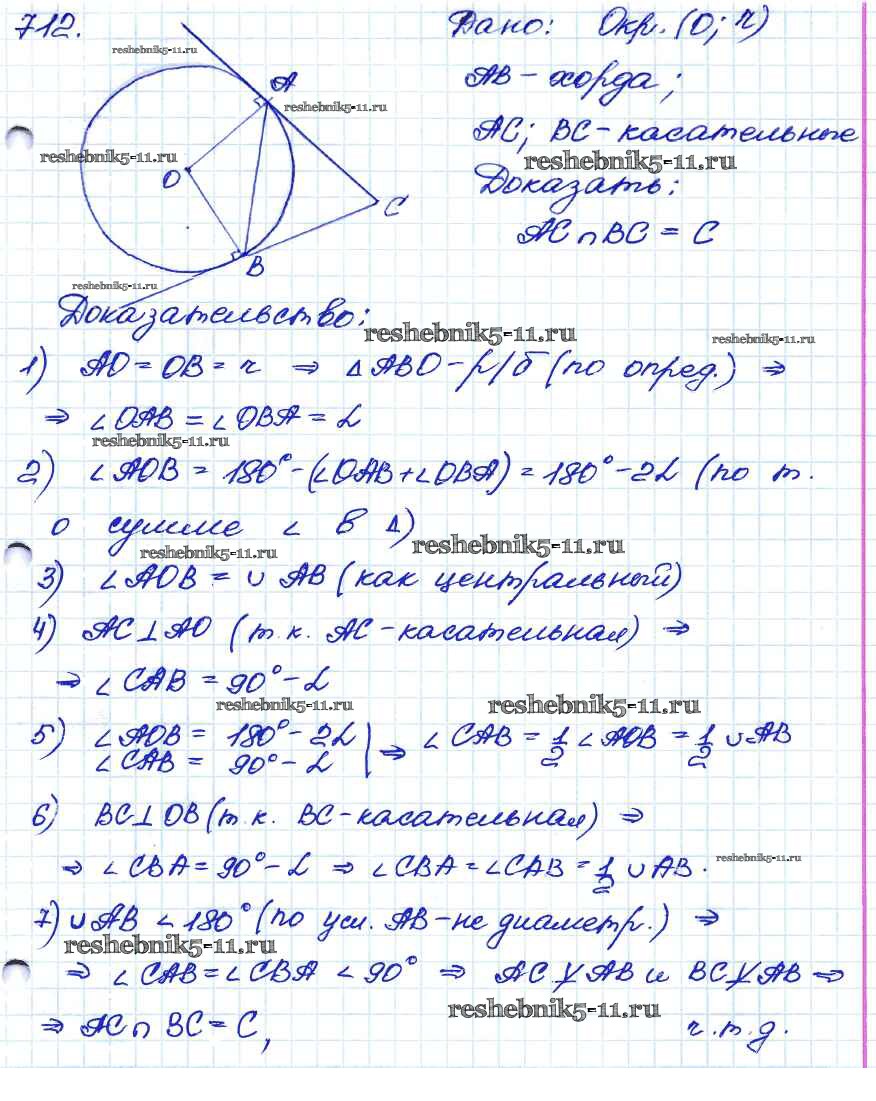 712.
Дано: Окр. (O; r)
reshebnik5-11.ru
A
AB - хорда;
reshebnik5-11.ru
AC; BC - касательные
reshebnik5-11.ru
reshebnik5-11.ru
O
Доказать:
C
AC ∩ BC = C
B
reshebnik5-11.ru
Доказательство:
reshebnik5-11.ru
reshebnik5-11.ru
1) AO = OB = r ⇒ △ ABO - р/б (по опред.) ⇒
⇒ ∠OAB = ∠OBA = α
reshebnik5-11.ru
2) ∠AOB = 180° - (∠OAB + ∠OBA) = 180° - 2α (по т.
о сумме ∠ в △)
reshebnik5-11.ru
reshebnik5-11.ru
3) ∠AOB = ∪ AB (как центральный)
4) AC ⊥ AO (т.к. AC - касательная) ⇒
⇒ ∠CAB = 90° - α
reshebnik5-11.ru
reshebnik5-11.ru
5) ∠AOB = 180° - 2α | ⇒ ∠CAB = 1/2 ∠AOB = 1/2 ∪AB
∠CAB = 90° - α
6) BC ⊥ OB (т.к. BC - касательная) ⇒
⇒ ∠CBA = 90° - α ⇒ ∠CBA = ∠CAB = 1/2 ∪ AB.
reshebnik5-11.ru
7) ∪ AB < 180° (по усл. AB - не диаметр.) ⇒
reshebnik5-11.ru
⇒ ∠CAB = ∠CBA < 90° ⇒ AC ⊥̸ AB и BC ⊥̸ AB ⇒
reshebnik5-11.ru
⇒ AC ∩ BC = C, ч.т.д.